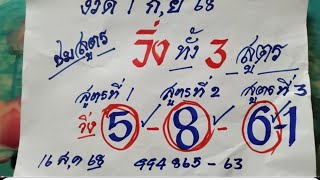 งวด 1 ก.ย 68
ชมสูตร วิ่ง ทั้ง 3 สูตร
สูตรที่ 1 สูตรที่ 2 สูตรที่ 3
วิ่ง 5 - 8 - 6-1
16 ส.ค 68 994865 - 63